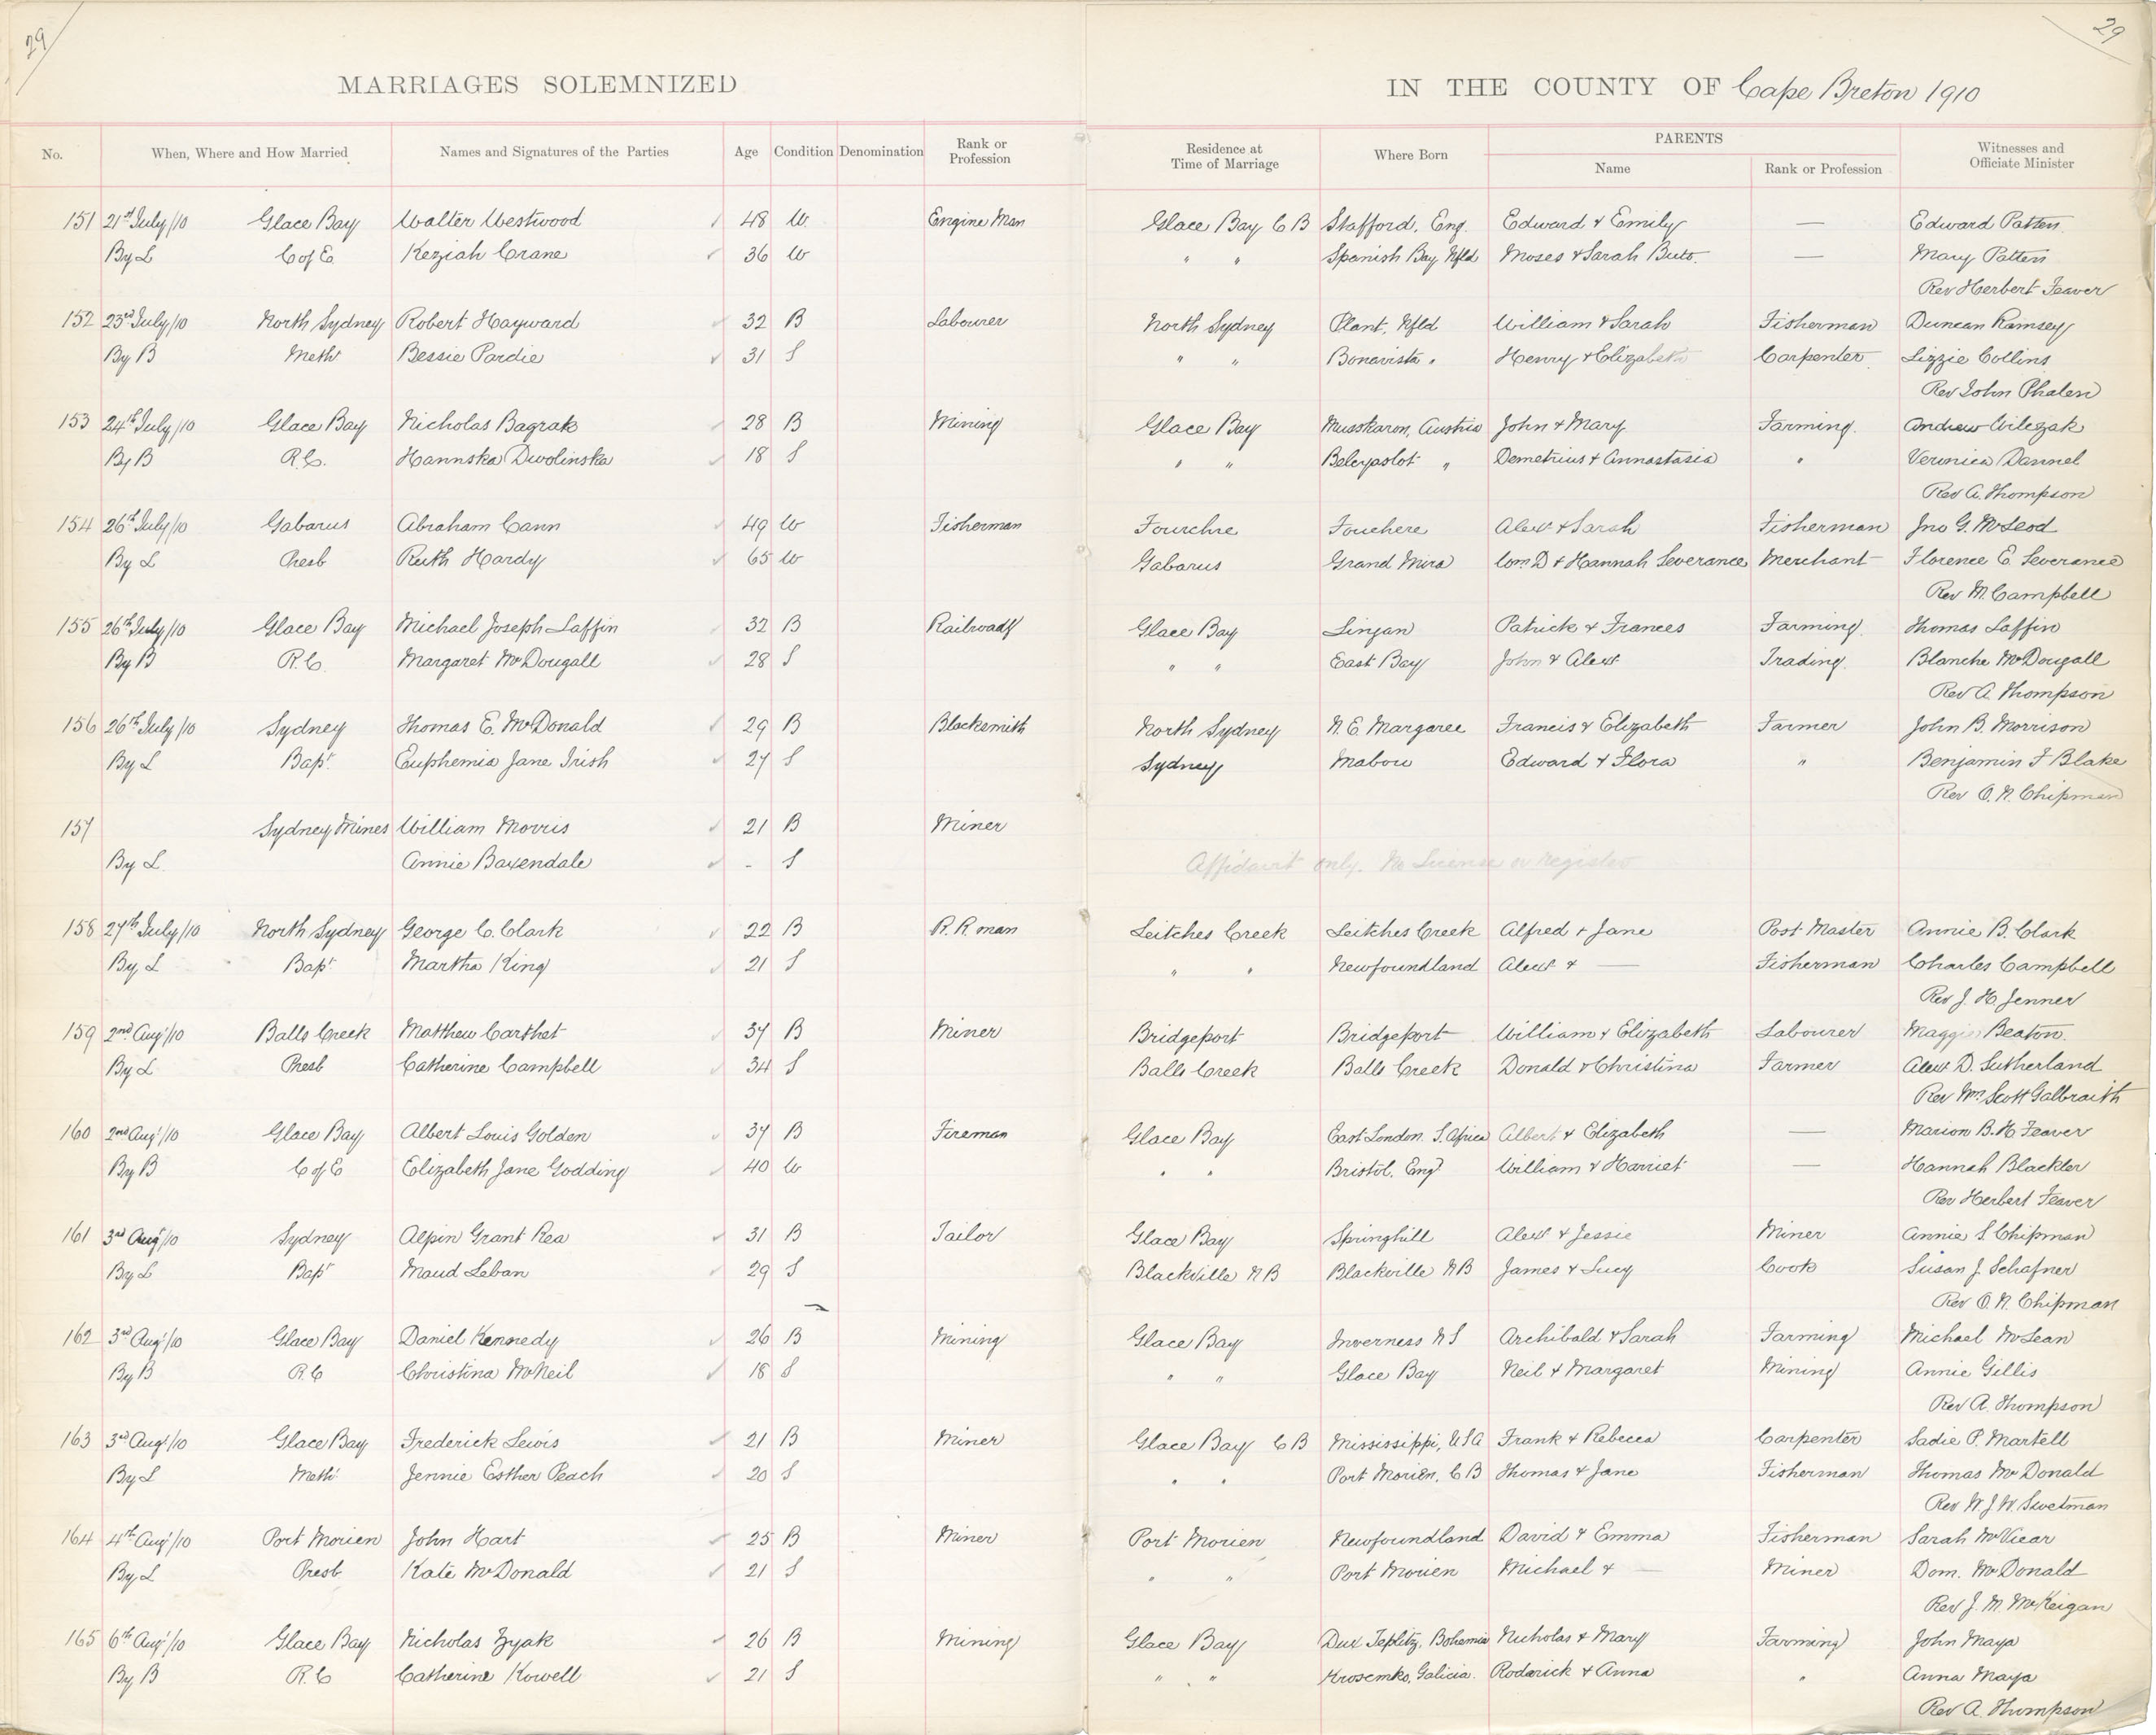 29 29
MARRIAGES SOLEMNIZED IN THE COUNTY OF Cape Breton 1910
No. When, Where and How Married Names and Signatures of the Parties Age Condition Denomination Rank or Profession Residence at Time of Marriage Where Born PARENTS Name Rank or Profession Witnesses and Officiate Minister
151 21st July/10 Glace Bay Walter Westwood 48 W. Engine Man Glace Bay C B Stafford, Eng. Edward & Emily — Edward Patten
By L C of E. Keziah Crane 36 W " " Spanish Bay Nfld Moses & Sarah Buts. — Mary Patten
Rev Herbert Feaver
152 23rd July/10 North Sydney Robert Hayward 32 B Labourer North Sydney Plant, Nfld William & Sarah Fisherman Duncan Ramsey
By B Meth Bessie Pardie 31 S " " Bonavista " Henry & Elizabeth Carpenter Lizzie Collins
Rev John Phalen
153 24th July/10 Glace Bay Nicholas Bagrak 28 B Mining Glace Bay Musskaron, Austria John & Mary Farming. Andrew Wilczak
By B R.C. Hannska Dwolinska 18 S " " Beleyaslot " Demetrius & Annastasia " Veronica Dannel
Rev A. Thompson
154 26th July/10 Gabarus Abraham Cann 49 W Fisherman Fourchre Fouchere Alex & Sarah Fisherman Jno G. McLeod
By L Presb Ruth Hardy 65 W Gabarus Grand Mira Wm D & Hannah Severance Merchant Florence E. Severance
Rev M. Campbell
155 26th July/10 Glace Bay Michael Joseph Laffin 32 B Railroady Glace Bay Lingan Patrick & Frances Farming Thomas Laffin
By B R.C. Margaret McDougall 28 S " " East Bay John & Alex. Trading. Blanche McDougall
Rev A. Thompson
156 26th July/10 Sydney Thomas E. McDonald 29 B Blacksmith North Sydney N. E. Margaree Francis & Elizabeth Farmer John B. Morrison
By L Bapt. Euphemia Jane Irish 27 S Sydney Mabou Edward & Flora " Benjamin F Blake
Rev O. N. Chipman
157 Sydney Mines William Morris 21 B Miner
By L. Annie Baxendale - S Affidavit only. No License or Register
158 27th July/10 North Sydney George C. Clark 22 B R. R man Leitches Creek Leitches Creek Alfred & Jane Post Master Annie B. Clark
By L Bapt Martha King 21 S " " Newfoundland Alex & — Fisherman Charles Campbell
Rev J. H. Jenner
159 2nd Aug/10 Balls Creek Matthew Carthet 37 B Miner Bridgeport Bridgeport William & Elizabeth Labourer Maggie Beaton.
By L Presb Catherine Campbell 34 S Balls Creek Balls Creek Donald & Christina Farmer Alex D. Sutherland
Rev Wm Scott Galbraith
160 2nd Aug/10 Glace Bay Albert Louis Golden 37 B Fireman Glace Bay East London. S. Africa Albert & Elizabeth — Marion B. H. Feaver
By B C of E Elizabeth Jane Godding 40 W " " Bristol. Eng. William & Harriet — Hannah Blackler
Rev Herbert Feaver
161 3rd Aug/10 Sydney Alpin Grant Rea 31 B Tailor Glace Bay Springhill Alex & Jessie Miner Annie S. Chipman
By L Bapt Maud Leban 29 S Blackville N B Blackville N B James & Lucy Cook Susan J. Schafner
Rev O. N. Chipman
162 3rd Aug/10 Glace Bay Daniel Kennedy 26 B Mining Glace Bay Inverness N S Archibald & Sarah Farming Michael McLean
By B R. C Christina McNeil 18 S " " Glace Bay Neil & Margaret Mining Annie Gillis
Rev A. Thompson
163 3rd Aug/10 Glace Bay Frederick Lewis 21 B Miner Glace Bay C B Mississippi, U S A Frank & Rebecca Carpenter Sadie P. Martell
By L Meth Jennie Esther Peach 20 S " " Port Morien, C B Thomas & Jane Fisherman Thomas McDonald
Rev W. J. W. Swetman
164 4th Aug/10 Port Morien John Hart 25 B Miner Port Morien Newfoundland David & Emma Fisherman Sarah McVicar
By L Presb Kate McDonald 21 S " " Port Morien Michael & — Miner Dom. McDonald
Rev J. M. McKeigan
165 6th Aug/10 Glace Bay Nicholas Zyak 26 B Mining Glace Bay Dux Teplitz, Bohemia Nicholas & Mary Farming John Maya
By B R. C Catherine Kowell 21 S " " Krosemko, Galicia. Roderick & Anna " Anna Maya
Rev A. Thompson